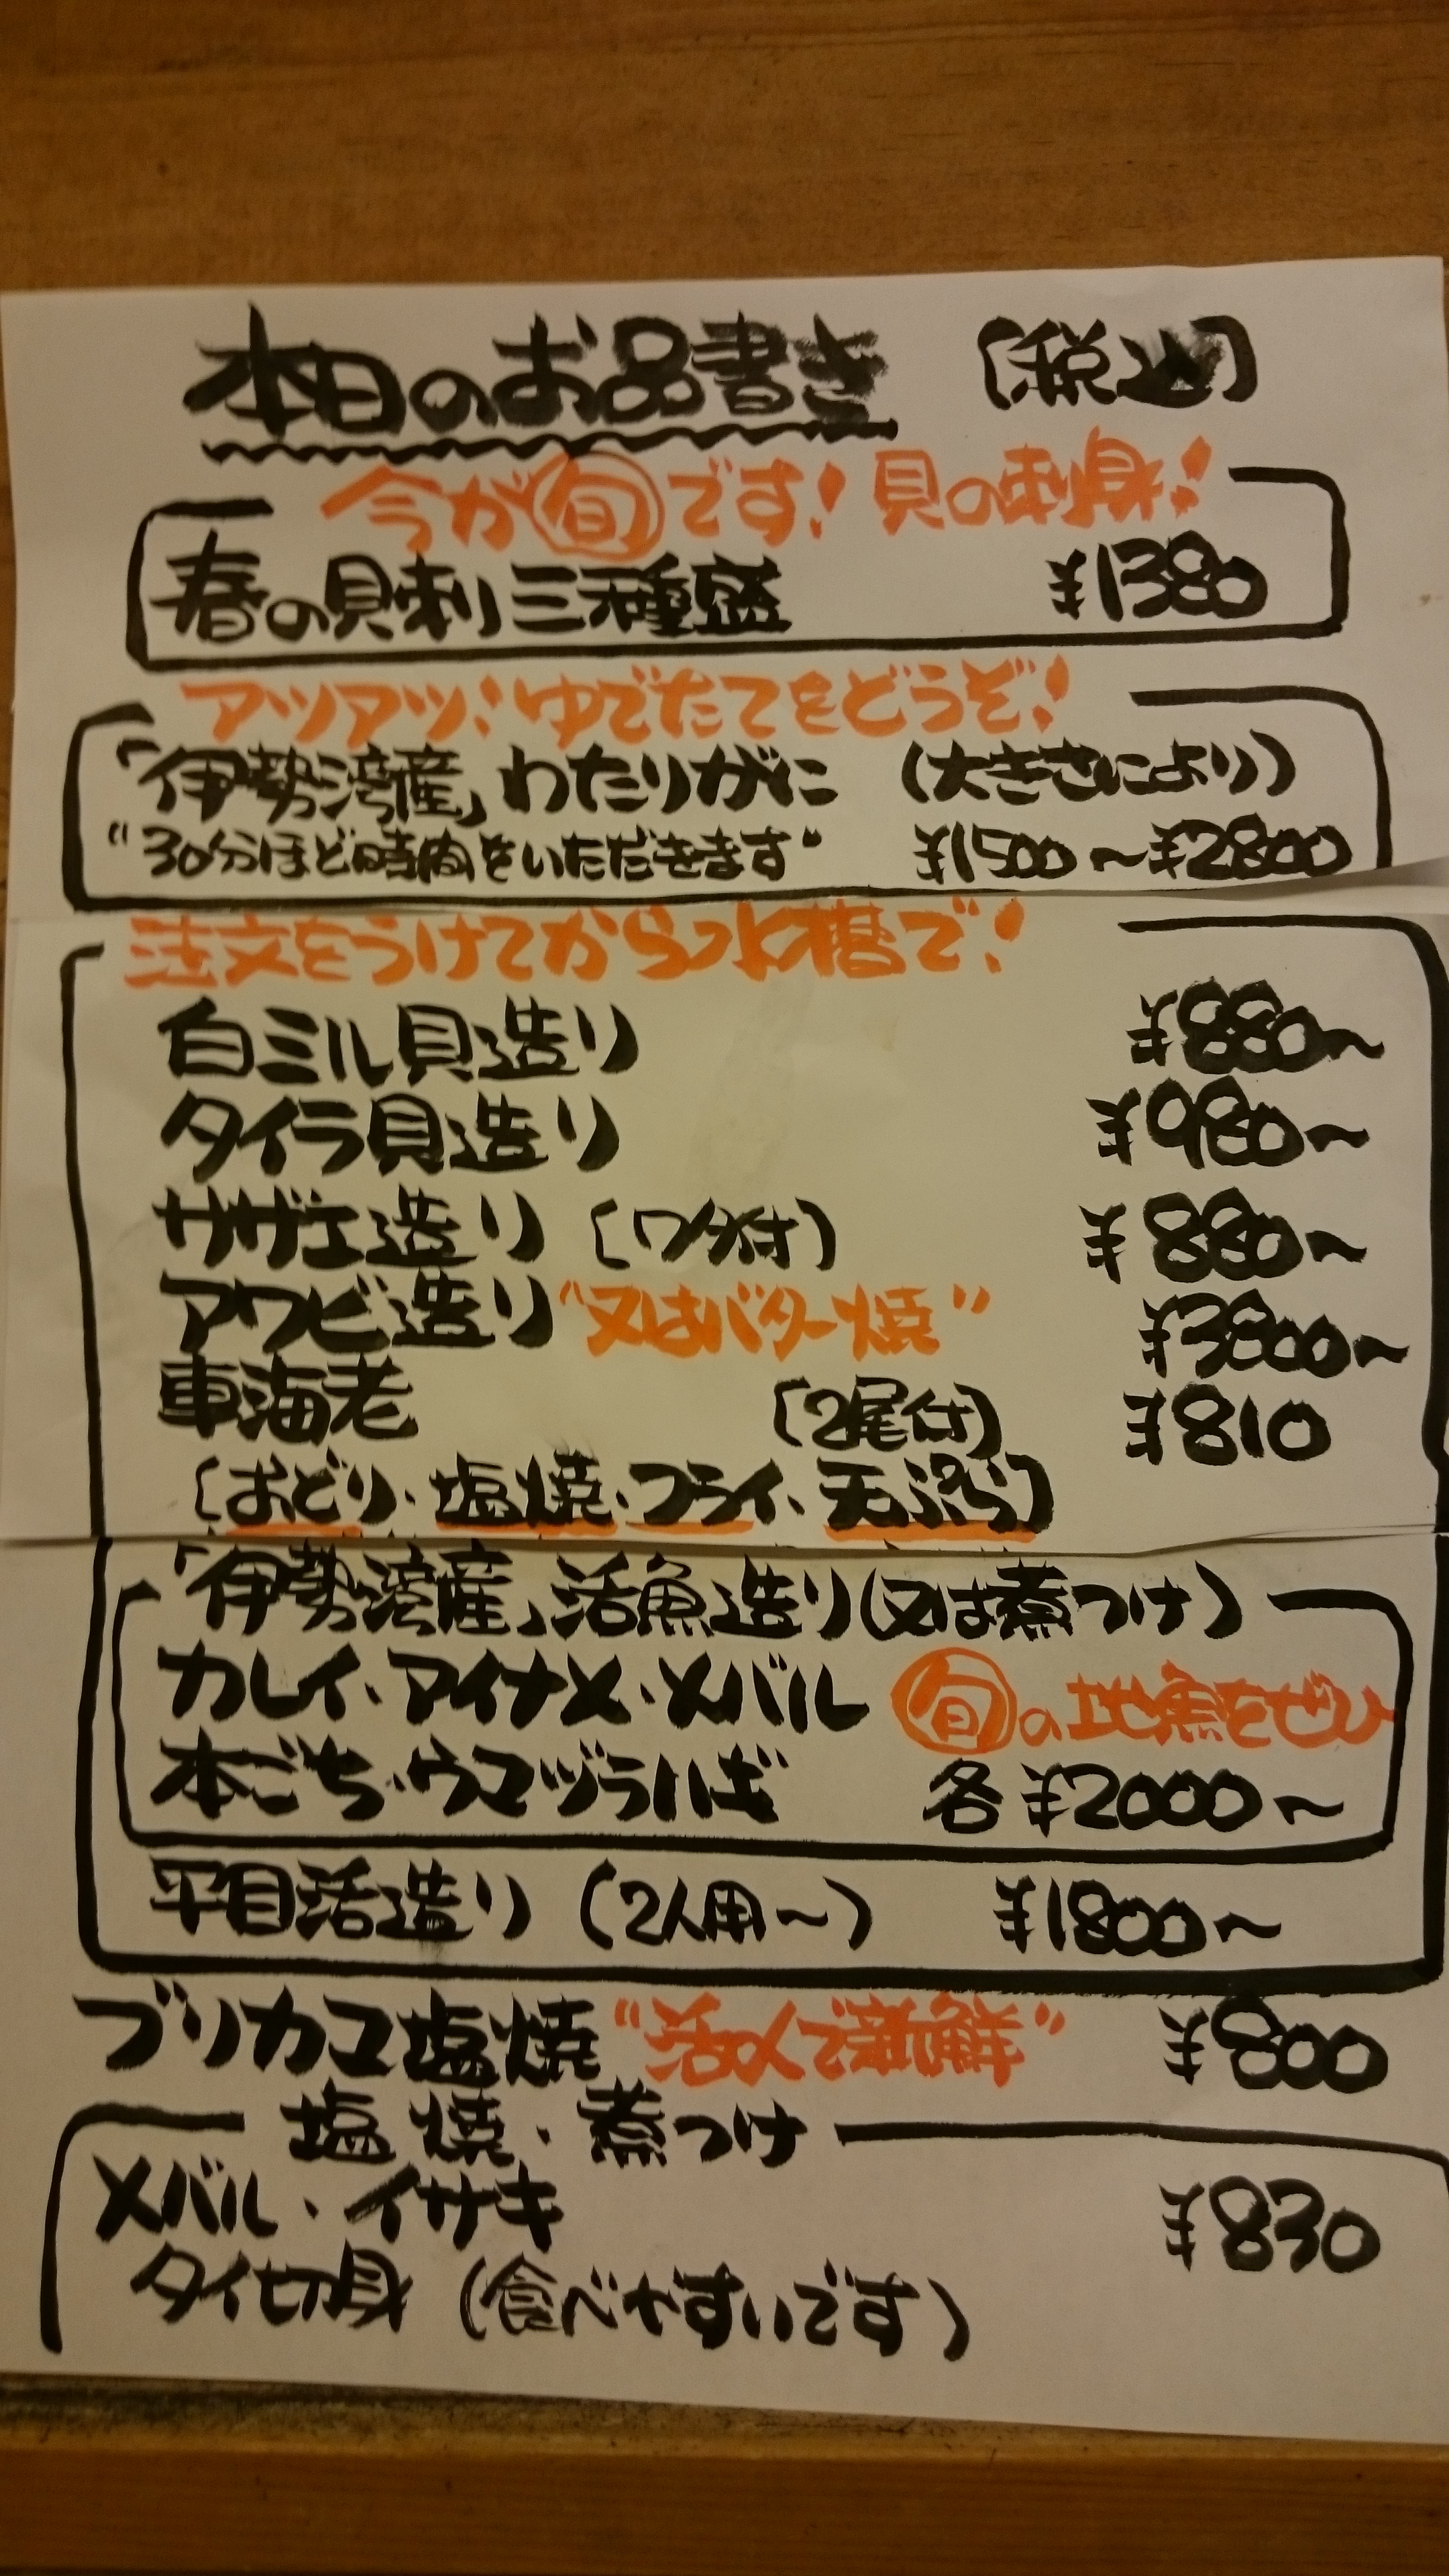 本日のお品書き 〔税込〕
今が旬です!貝の刺身!
春の貝刺三種盛 ¥1380
アツアツ!ゆでたてをどうぞ!
「伊勢湾産」わたりがに (大きさにより)
"30分ほど時間をいただきます" ¥1500〜¥2800
注文をうけてから水槽で!
白ミル貝造り ¥880〜
タイラ貝造り ¥980〜
サザエ造り 〔ワタ付〕 ¥880〜
アワビ造り "又はバター焼" ¥3800〜
車海老 〔2尾付〕 ¥810
〔おどり・塩焼・フライ・天ぷら〕
「伊勢湾産」活魚造り(又は煮つけ)
カレイ・アイナメ・メバル 旬の地魚をぜひ
本ごち・ウマヅラハギ 各¥2000〜
平目活造り (2人用〜) ¥1800〜
ブリカマ塩焼 "活〆で新鮮" ¥800
塩焼・煮つけ
メバル・イサキ ¥830
タイ切身 (食べやすいです)